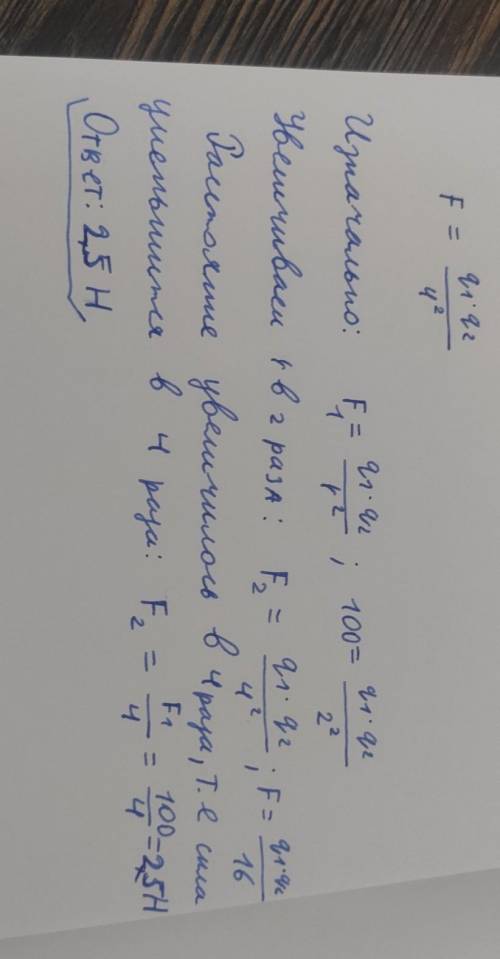 F = q1·q2 / 4²
Изначально: F₁ = q1·q2 / r² ; 100 = q1·q2 / 2²
Увеличиваем r в 2 раза: F₂ = q1·q2 / 4² ; F = q1·q2 / 16
Расстояние увеличилось в 4 раза, т.е сила
уменьшится в 4 раза: F₂ = F1 / 4 = 100 / 4 = 25 Н
Ответ: 25 Н